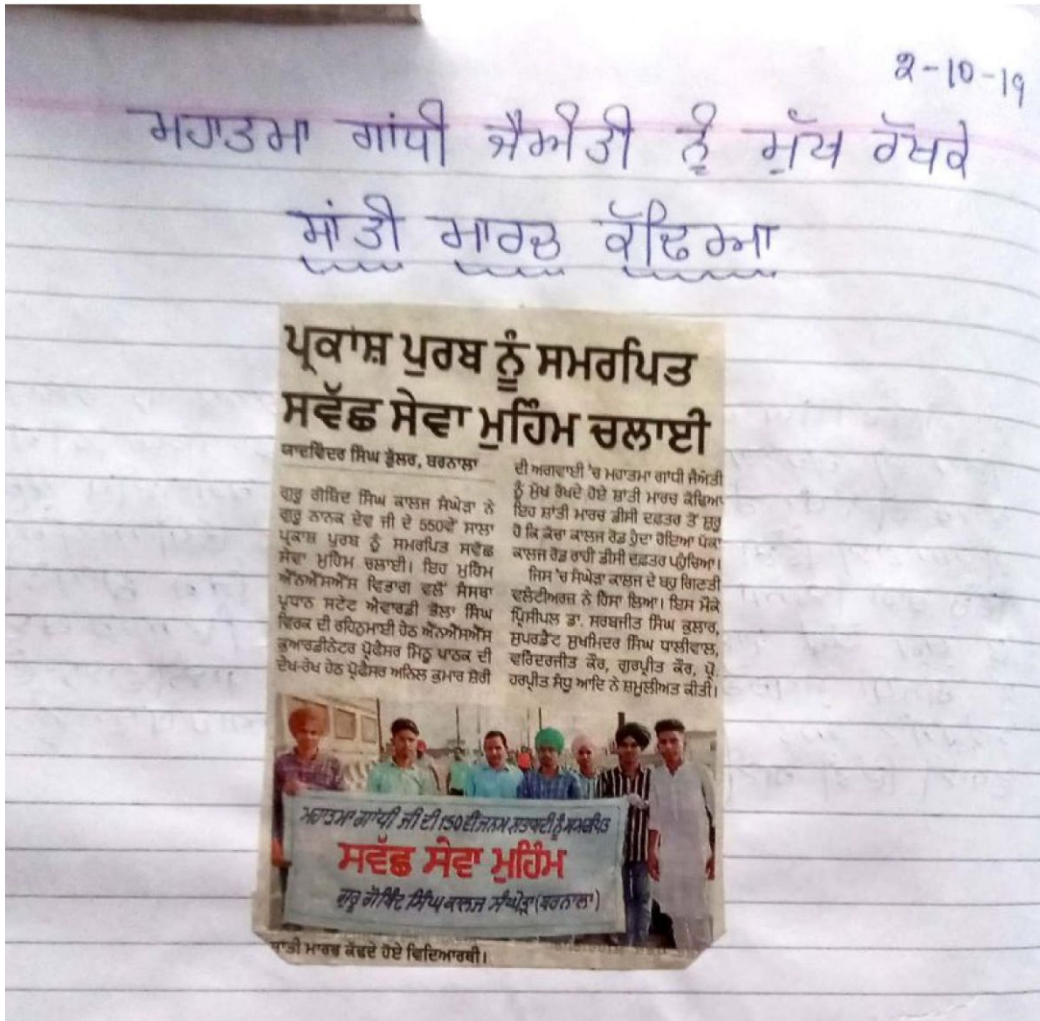 ੨-10-19
ਮਹਾਤਮਾ ਗਾਂਧੀ ਜੈਅੰਤੀ ਨੂੰ ਮੁੱਖ ਰੱਖਕੇ
ਸ਼ਾਂਤੀ ਮਾਰਚ ਕੱਢਿਆ
ਪ੍ਰਕਾਸ਼ ਪੁਰਬ ਨੂੰ ਸਮਰਪਿਤ
ਸਵੱਛ ਸੇਵਾ ਮੁਹਿੰਮ ਚਲਾਈ
ਯਾਦਵਿੰਦਰ ਸਿੰਘ ਭੁੱਲਰ, ਬਰਨਾਲਾ
ਗੁਰੂ ਗੋਬਿੰਦ ਸਿੰਘ ਕਾਲਜ ਸੰਘੇੜਾ ਨੇ
ਗੁਰੂ ਨਾਨਕ ਦੇਵ ਜੀ ਦੇ 550ਵੇਂ ਸਾਲਾ
ਪ੍ਰਕਾਸ਼ ਪੁਰਬ ਨੂੰ ਸਮਰਪਿਤ ਸਵੱਛ
ਸੇਵਾ ਮੁਹਿੰਮ ਚਲਾਈ। ਇਹ ਮੁਹਿੰਮ
ਐੱਨਐੱਸਐੱਸ ਵਿਭਾਗ ਵਲੋਂ ਸੰਸਥਾ
ਪ੍ਰਧਾਨ ਸਟੇਟ ਐਵਾਰਡੀ ਭੋਲਾ ਸਿੰਘ
ਵਿਰਕ ਦੀ ਰਹਿਨੁਮਾਈ ਹੇਠ ਐੱਨਐੱਸਐੱਸ
ਕੁਆਰਡੀਨੇਟਰ ਪ੍ਰੋਫੈਸਰ ਮਿਨੂ ਪਾਠਕ ਦੀ
ਦੇਖ-ਰੇਖ ਹੇਠ ਪ੍ਰੋਫੈਸਰ ਅਨਿਲ ਕੁਮਾਰ ਸ਼ੋਰੀ
ਦੀ ਅਗਵਾਈ 'ਚ ਮਹਾਤਮਾ ਗਾਂਧੀ ਜੈਅੰਤੀ
ਨੂੰ ਮੁੱਖ ਰੱਖਦੇ ਹੋਏ ਸ਼ਾਂਤੀ ਮਾਰਚ ਕੱਢਿਆ
ਇਹ ਸ਼ਾਂਤੀ ਮਾਰਚ ਡੀਸੀ ਦਫ਼ਤਰ ਤੋਂ ਸ਼ੁਰੂ
ਹੋ ਕਿ ਕੱਚਾ ਕਾਲਜ ਰੋਡ ਹੁੰਦਾ ਹੋਇਆ ਪੱਕਾ
ਕਾਲਜ ਰੋਡ ਰਾਹੀਂ ਡੀਸੀ ਦਫ਼ਤਰ ਪਹੁੰਚਿਆ।
ਜਿਸ 'ਚ ਸੰਘੇੜਾ ਕਾਲਜ ਦੇ ਬਹੁ ਗਿਣਤੀ
ਵਲੰਟੀਅਰਜ਼ ਨੇ ਹਿੱਸਾ ਲਿਆ। ਇਸ ਮੌਕੇ
ਪ੍ਰਿੰਸੀਪਲ ਡਾ. ਸਰਬਜੀਤ ਸਿੰਘ ਕੁਲਾਰ,
ਸੁਪਰਡੈਂਟ ਸੁਖਮਿੰਦਰ ਸਿੰਘ ਧਾਲੀਵਾਲ,
ਵਰਿੰਦਰਜੀਤ ਕੌਰ, ਗੁਰਪ੍ਰੀਤ ਕੌਰ, ਪ੍ਰੋ.
ਹਰਪ੍ਰੀਤ ਸੰਧੂ ਆਦਿ ਨੇ ਸ਼ਮੂਲੀਅਤ ਕੀਤੀ।
ਮਹਾਤਮਾ ਗਾਂਧੀ ਜੀ ਦੀ 150ਵੀਂ ਜਨਮ ਸ਼ਤਾਬਦੀ ਨੂੰ ਸਮਰਪਿਤ
ਸਵੱਛ ਸੇਵਾ ਮੁਹਿੰਮ
ਗੁਰੂ ਗੋਬਿੰਦ ਸਿੰਘ ਕਾਲਜ ਸੰਘੇੜਾ (ਬਰਨਾਲਾ)
ਸ਼ਾਂਤੀ ਮਾਰਚ ਕੱਢਦੇ ਹੋਏ ਵਿਦਿਆਰਥੀ।